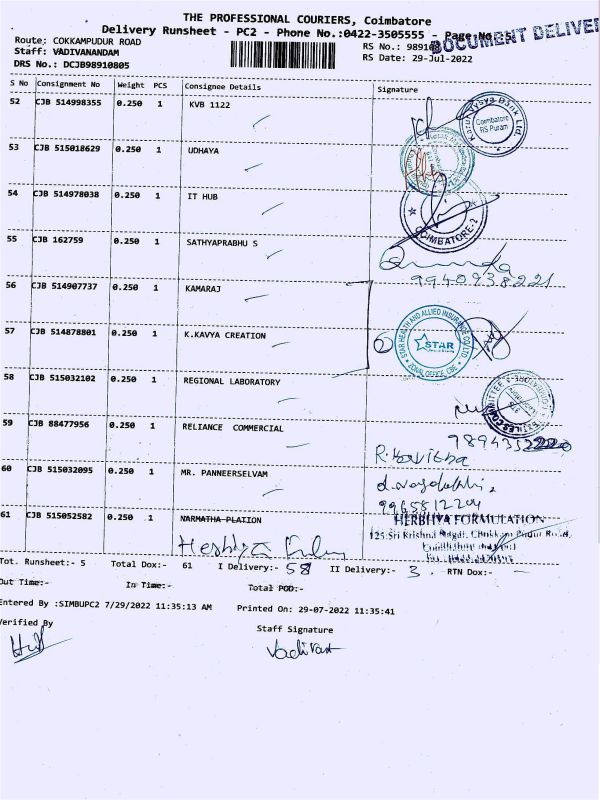 THE PROFESSIONAL COURIERS, Coimbatore
Delivery Runsheet - PC2 - Phone No.:0422-3505555 - Page No. 5
DOCUMENT DELIVER
Route: COKKAMPUDUR ROAD
Staff: VADIVANANDAM
DRS No.: DCJB98910805
RS No.: 98910
RS Date: 29-Jul-2022
S No Consignment No Weight PCS Consignee Details Signature
52 CJB 514998355 0.250 1 KVB 1122
Karur Vysya Bank Ltd.
Coimbatore
RS Puram
53 CJB 515018629 0.250 1 UDHAYA
54 CJB 514978038 0.250 1 IT HUB
COIMBATORE-2
55 CJB 162759 0.250 1 SATHYAPRABHU S
9940938221
56 CJB 514907737 0.250 1 KAMARAJ
57 CJB 514878801 0.250 1 K.KAVYA CREATION
STAR HEALTH AND ALLIED INSURANCE CO LTD
STAR
ZONAL OFFICE, CBE
58 CJB 515032102 0.250 1 REGIONAL LABORATORY
59 CJB 88477956 0.250 1 RELIANCE COMMERCIAL
60 CJB 515032095 0.250 1 MR. PANNEERSELVAM
9965812204
61 CJB 515052582 0.250 1 NARMATHA PLATION
HERBHYA FORMULATION
125, Sri Krishna Nagar, Chokkam Pudur Road,
Tot. Runsheet:- 5 Total Dox:- 61 I Delivery:- 58 II Delivery:- 3 RTN Dox:- —
Out Time:- In Time:- Total POD:-
Entered By :SIMBUPC2 7/29/2022 11:35:13 AM Printed On: 29-07-2022 11:35:41
Verified By
Staff Signature